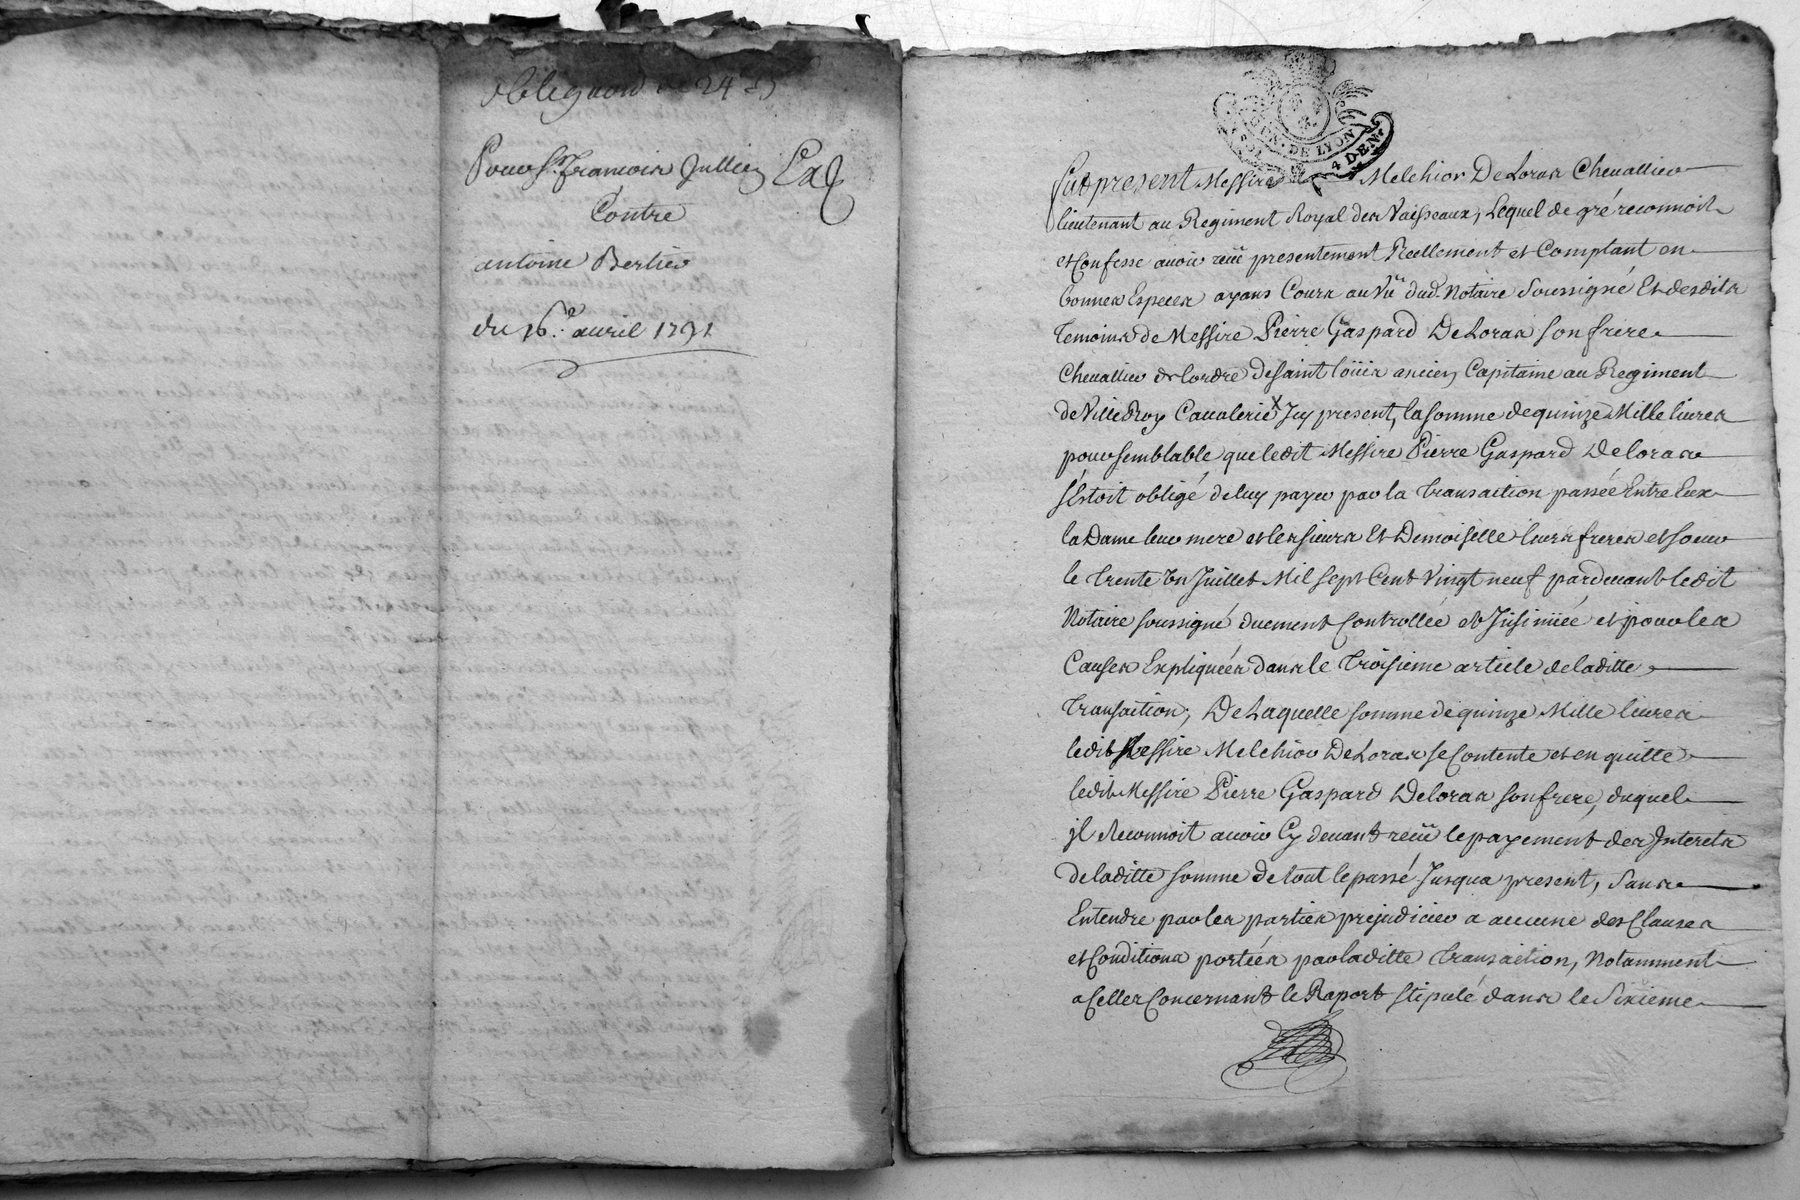 obligaon de 24 ₶
Pour Sr. francois Jullien Exp
Contre
antoine Bertier
du 16.e auril 1731
GEN. DE LYON
4 DEN.
fut present Messire Melchior De Loras Cheuallier
lieutenant au Regiment Royal des Vaisseaux, Lequel de gré reconnoit
et Confesse auoir reçü presentement Reellement et Comptant en
bonnes Especes ayans Cours au Vû dud. Notaire Soussigné Et desdits
temoins de Messire Pierre Gaspard De Loras son frere
Cheuallier de lordre de Saint loüis ancien Capitaine au Regiment
de Ville Roy Caualerie Icy present, la somme de quinze Mille liures
pour semblable que ledit Messire Pierre Gaspard De loras
s'Estoit obligé de luy payer par la transaction passée Entre Eux
la Dame leur mere et les sieurs Et Demoiselle leurs freres et soeur
le trente Un Juillet Mil sept Cent Vingt neuf pardeuant ledit
Notaire soussigné duement Controllée et Insinüée et pour les
Causes Expliquées dans le troisieme article de laditte
transaction; De Laquelle somme de quinze Mille liures
ledit Messire Melchior De Loras se Contente et en quitte
ledit Messire Pierre Gaspard De loras son frere, duquel
jl Reconnoit auoir Cy deuant reçü le payement des Interets
de laditte somme de tout le passé Jusqua present, Sans
Entendre par les parties prejudicier a aucune des Clauses
et Conditions portées par laditte transaction, Notamment
a Celles Concernant le Raport stipulé dans le Sixieme